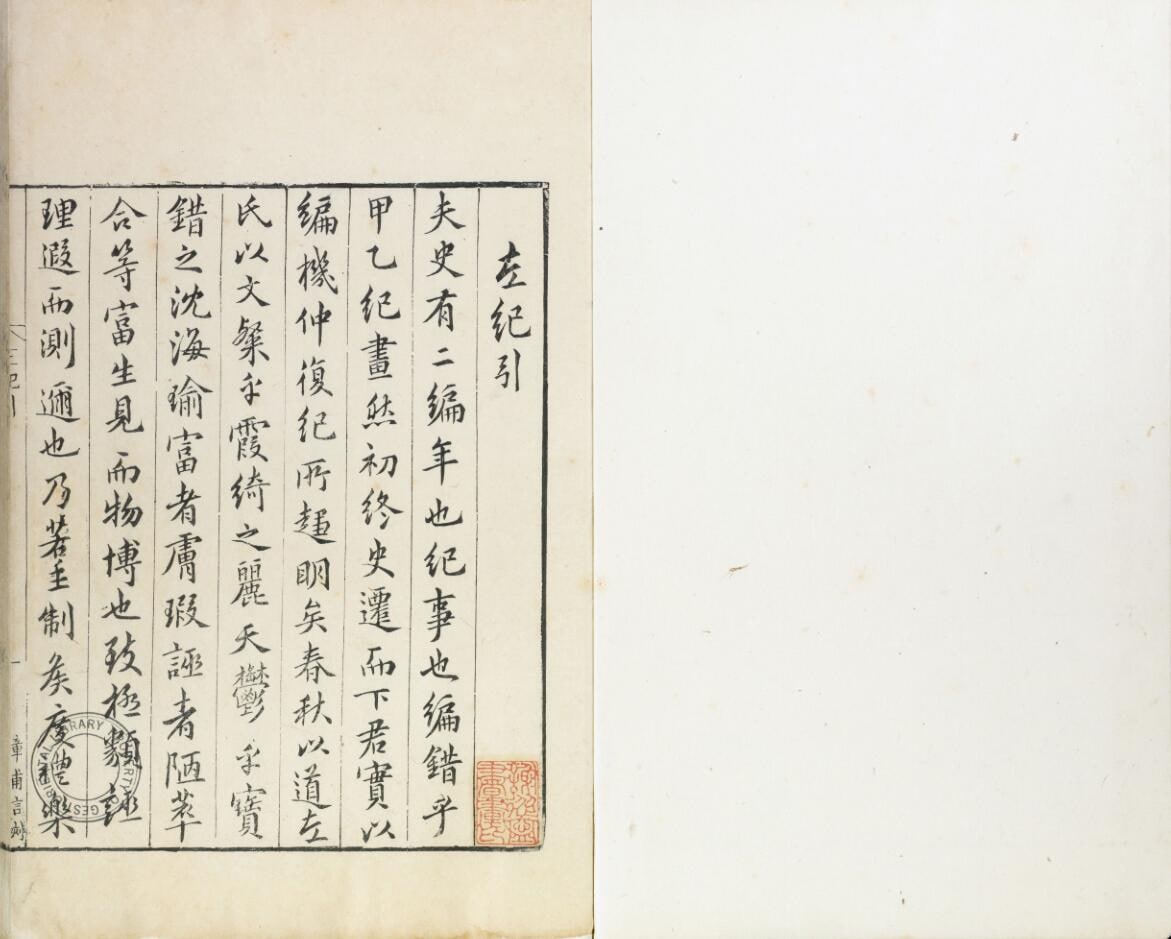 左紀引
夫史有二編年也紀事也編錯乎
甲乙紀畫然初終史遷而下君實以
編機仲復紀所趨明矣春秋以道左
氏以文粲乎霞綺之麗天鬱乎寶
錯之沈海瑜富者膚瑕誣者陋萃
合等富生見而物博也致極類誣
理遐而測邇也乃若王制侯度禮樂
紀引
一
章甫言
LIBRARY
GEST